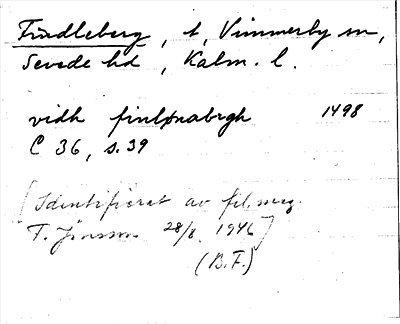 Findleberg, t, Vimmerby sn,
Sevede hd, Kalm. l.
vidh finlønabrgh 1498
C 36, s. 39
[Identifierat av fil. mag.
T. Jönsson 28/8 1946]
(B.F.)